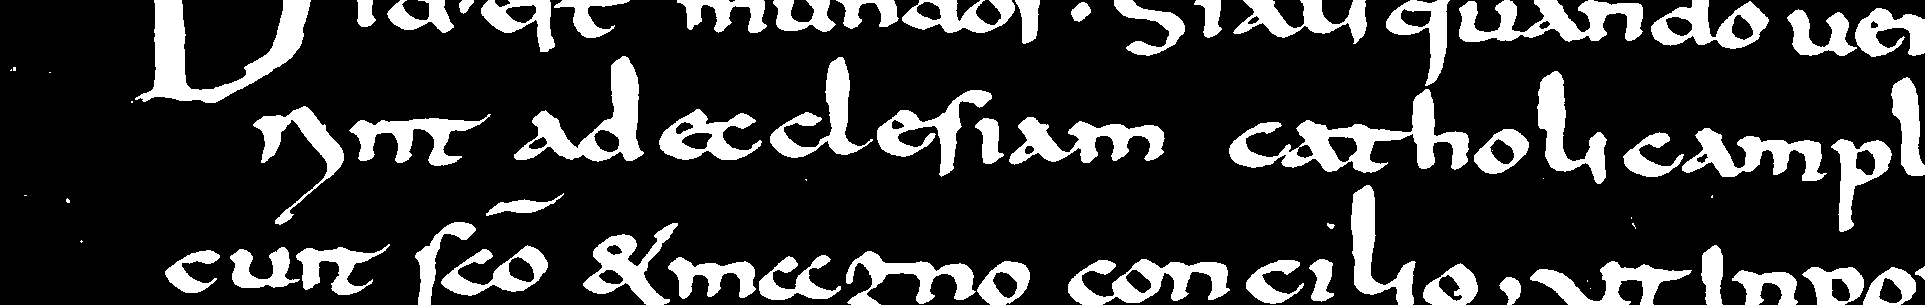 id· est mundos · Si ali quando uen
rint ad ecclesiam catholicam pl
cuit sc̄o & magno concilio, ut Inpo